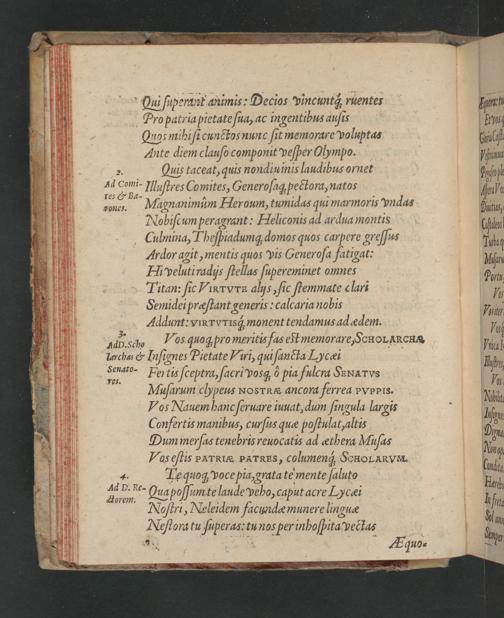 Qui superant animis: Decios vincuntq́; ruentes
Pro patria pietate sua, ac ingentibus ausis
Quos mihi si cunctos nunc sit memorare voluptas
Ante diem clauso componit vesper Olympo.
2.
Ad Comi-
tes & Ba-
rones.
Quis taceat, quis non diuinis laudibus ornet
Illustres Comites, Generosaq́; pectora, natos
Magnanimûm Heroum, tumidas qui marmoris vndas
Nobiscum peragrant: Heliconis ad ardua montis
Culmina, Thespiadumq́; domos quos carpere gressus
Ardor agit, mentis quos vis Generosa fatigat:
Hi veluti radijs stellas supereminet omnes
Titan: sic VIRTVTE alys, sic stemmate clari
Semidei præstant generis: calcaria nobis
Addunt: VIRTVTISq́; monent tendamus ad ædem.
3.
Ad D. Scho
larchas &
Senato-
res.
Vos quoq́; pro meritis fas est memorare, SCHOLARCHÆ
Insignes Pietate Viri, qui sancta Lycæi
Fertis sceptra, sacri vosq́; ô pia fulcra SENATVS
Musarum clypeus NOSTRÆ ancora ferrea PVPPIS.
Vos Nauem hanc seruare iuuat, dum singula largis
Confertis manibus, cursus quæ postulat, altis
Dum mersas tenebris reuocatis ad æthera Musas
Vos estis PATRIÆ PATRES, columenq́; SCHOLARVM.
4.
Ad D. Re-
ctorem.
Te quoq́; voce pia, grata te mente saluto
Qua possum te laude veho, caput acre Lycæi
Nostri, Neleidem facundæ munere linguæ
Nestora tu superas: tu nos per inhospita vectas
Æquo-